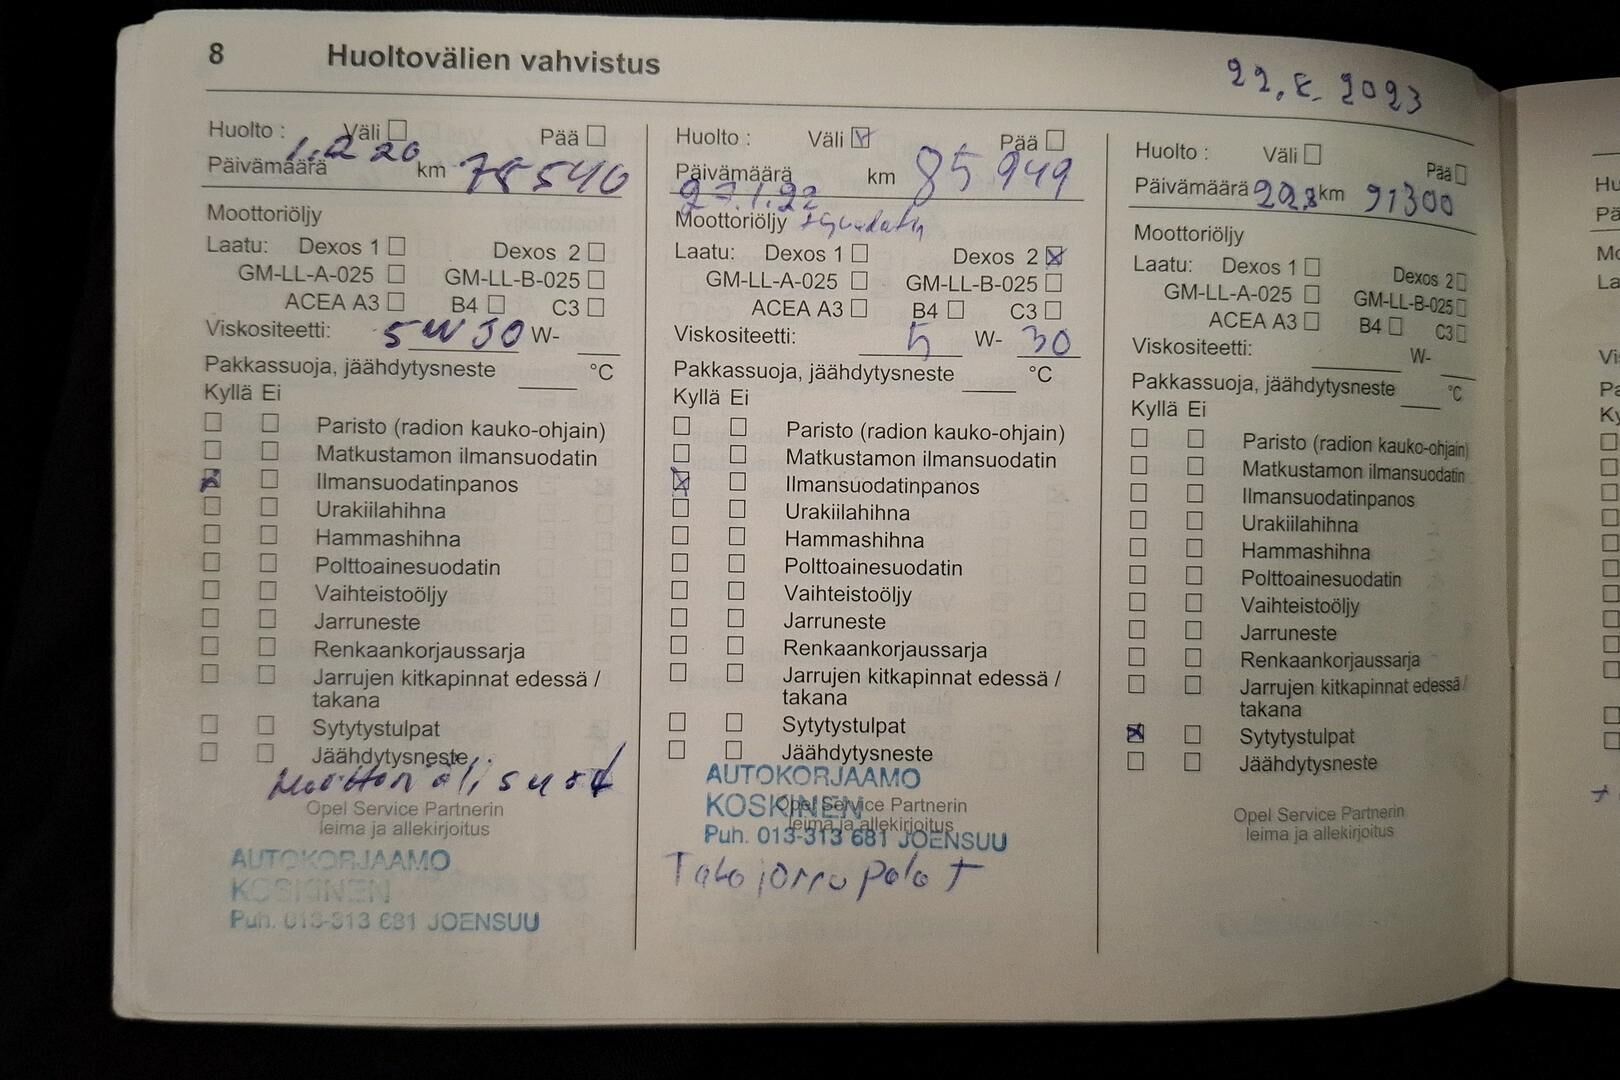 8 Huoltovälien vahvistus
2023
Huolto : Väli Pää
Päivämäärä km 78540
Moottoriöljy
Laatu: Dexos 1 Dexos 2
GM-LL-A-025 GM-LL-B-025
ACEA A3 B4 C3
Viskositeetti: 5W30 W-
Pakkassuoja, jäähdytysneste °C
Kyllä Ei
Paristo (radion kauko-ohjain)
Matkustamon ilmansuodatin
Ilmansuodatinpanos
Urakiilahihna
Hammashihna
Polttoainesuodatin
Vaihteistoöljy
Jarruneste
Renkaankorjaussarja
Jarrujen kitkapinnat edessä /
takana
Sytytystulpat
Jäähdytysneste
Opel Service Partnerin
leima ja allekirjoitus
AUTOKORJAAMO
KOSKINEN
Puh. 013-313 681 JOENSUU
Huolto : Väli Pää
Päivämäärä km 85 949
27.1.22
Moottoriöljy
Laatu: Dexos 1 Dexos 2
GM-LL-A-025 GM-LL-B-025
ACEA A3 B4 C3
Viskositeetti: 5 W- 30
Pakkassuoja, jäähdytysneste °C
Kyllä Ei
Paristo (radion kauko-ohjain)
Matkustamon ilmansuodatin
Ilmansuodatinpanos
Urakiilahihna
Hammashihna
Polttoainesuodatin
Vaihteistoöljy
Jarruneste
Renkaankorjaussarja
Jarrujen kitkapinnat edessä /
takana
Sytytystulpat
Jäähdytysneste
AUTOKORJAAMO
KOSKINEN
Opel Service Partnerin
leima ja allekirjoitus
Puh. 013-313 681 JOENSUU
Taka jarru palat
Huolto : Väli Pää
Päivämäärä 22.8 km 91300
Moottoriöljy
Laatu: Dexos 1 Dexos 2
GM-LL-A-025 GM-LL-B-025
ACEA A3 B4 C3
Viskositeetti: W-
Pakkassuoja, jäähdytysneste °C
Kyllä Ei
Paristo (radion kauko-ohjain)
Matkustamon ilmansuodatin
Ilmansuodatinpanos
Urakiilahihna
Hammashihna
Polttoainesuodatin
Vaihteistoöljy
Jarruneste
Renkaankorjaussarja
Jarrujen kitkapinnat edessä /
takana
Sytytystulpat
Jäähdytysneste
Opel Service Partnerin
leima ja allekirjoitus